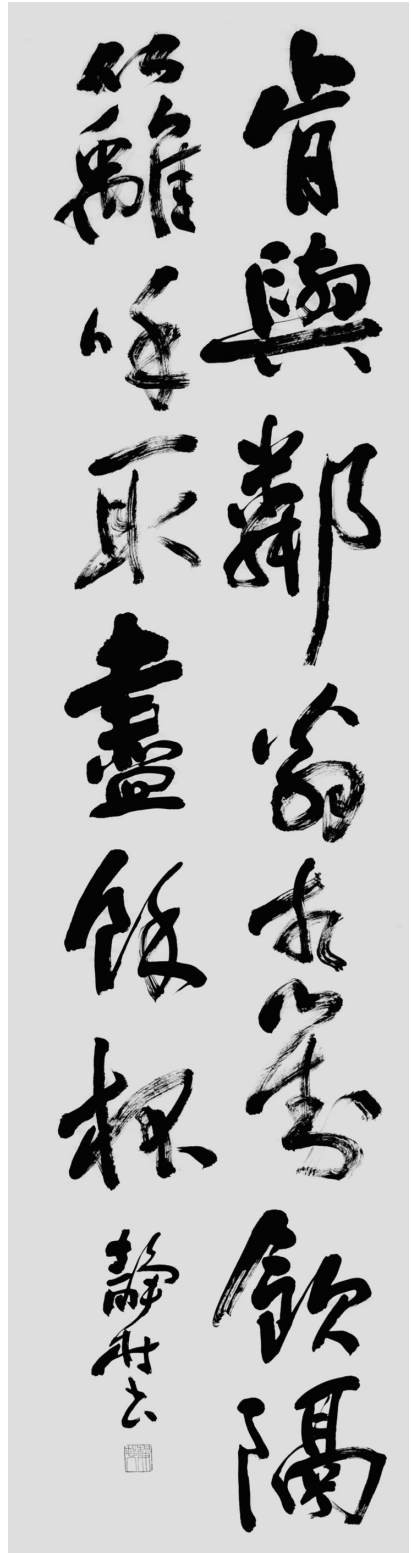 肯與鄰翁相對飲隔
籬呼取盡餘杯
靜村书